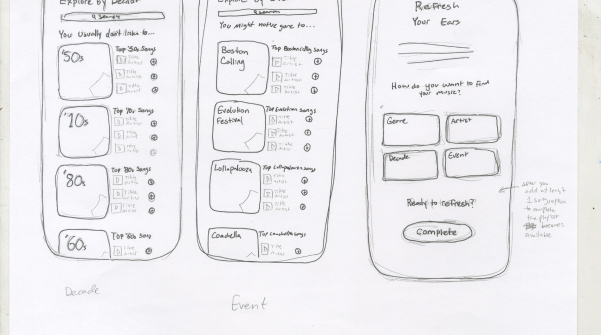 Explore by Decade
Search
You Usually don't listen to...
'50s
Top '50s Songs
Title
Artist
Title
Artist
Title
Artist
'10s
Top '10s Songs
Title
Artist
Title
Artist
Title
Artist
'80s
Top '80s Songs
Title
Artist
Title
Artist
Title
Artist
'60s
Top '60s Song
Title
Artist
Decade
Explore by
Search
You might not've gone to...
Boston
Calling
Top Boston Calling songs
Title
Artist
Title
Artist
Title
Artist
Evolution
Festival
Top Evolution songs
Title
Artist
Title
Artist
Title
Artist
Lollapalooza
Top Lollapalooza songs
Title
Artist
Title
Artist
Title
Artist
Coachella
Top Coachella songs
Title
Artist
Event
Refresh
Your Ears
How do you want to find
your music?
Genre
Artist
Decade
Event
Ready to refresh?
Complete
after you
add at least
1 song
to complete
the
becomes
available